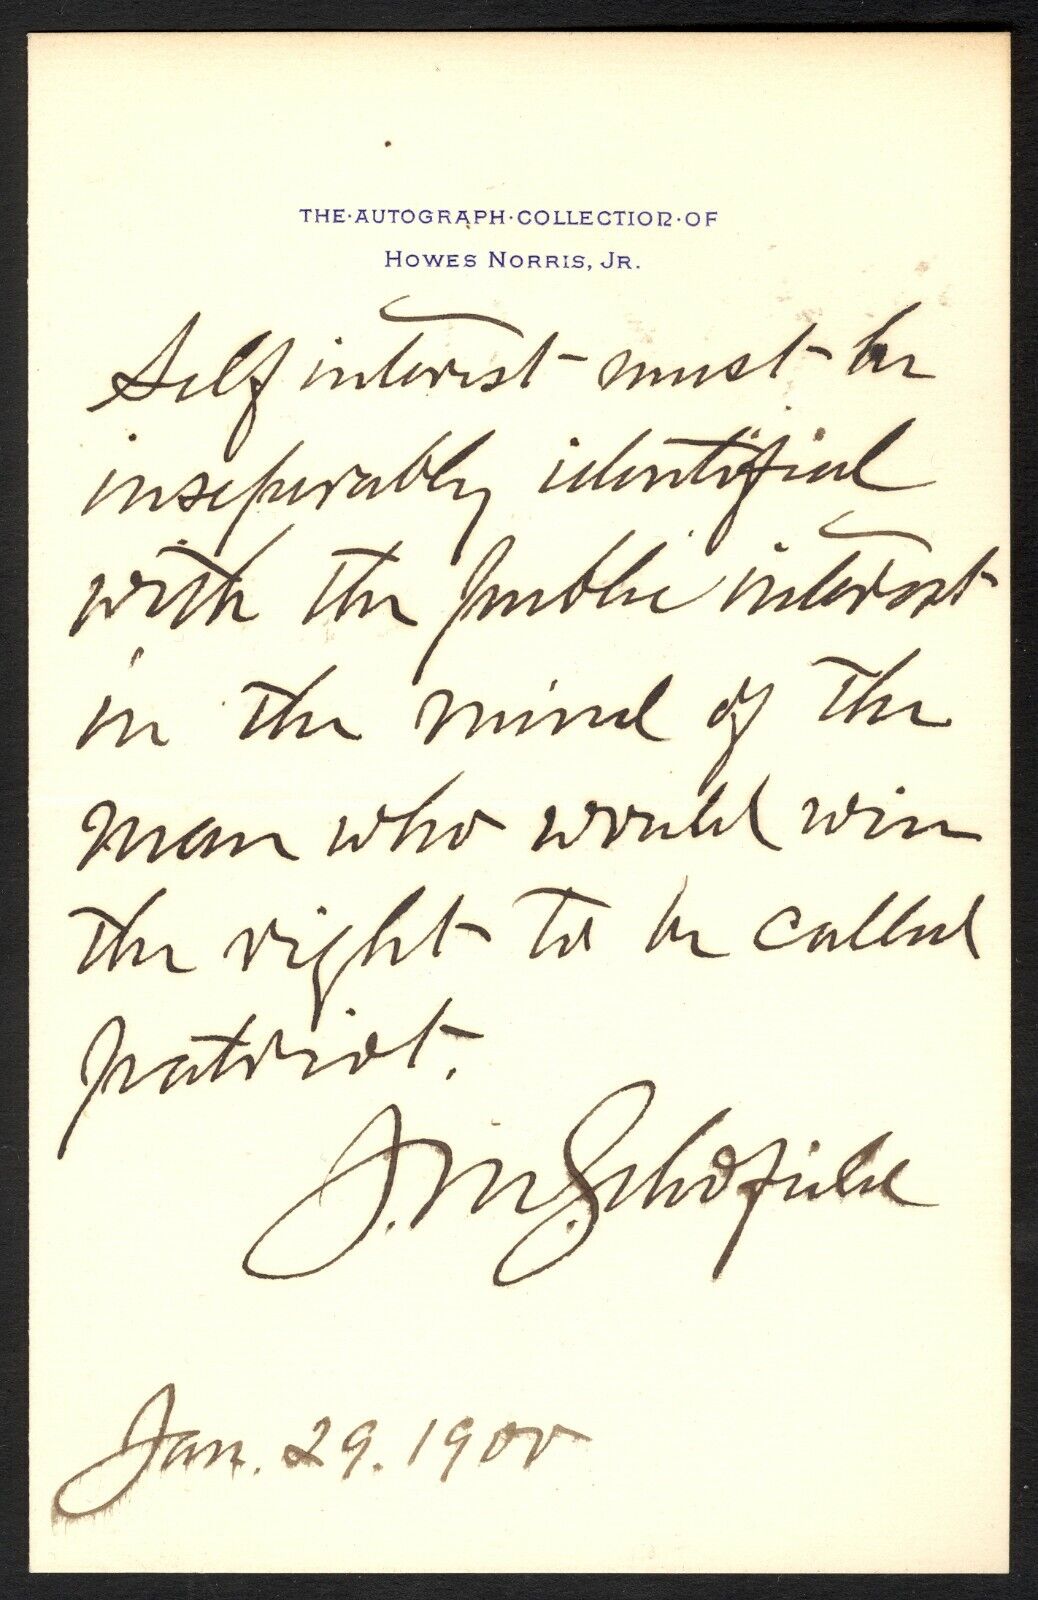 THE·AUTOGRAPH·COLLECTION·OF
HOWES NORRIS, JR.
Self interest must be
inseparably identified
with the public interest
in the mind of the
man who would win
the right to be called
patriot.
J. M. Schofield
Jan. 29. 1900